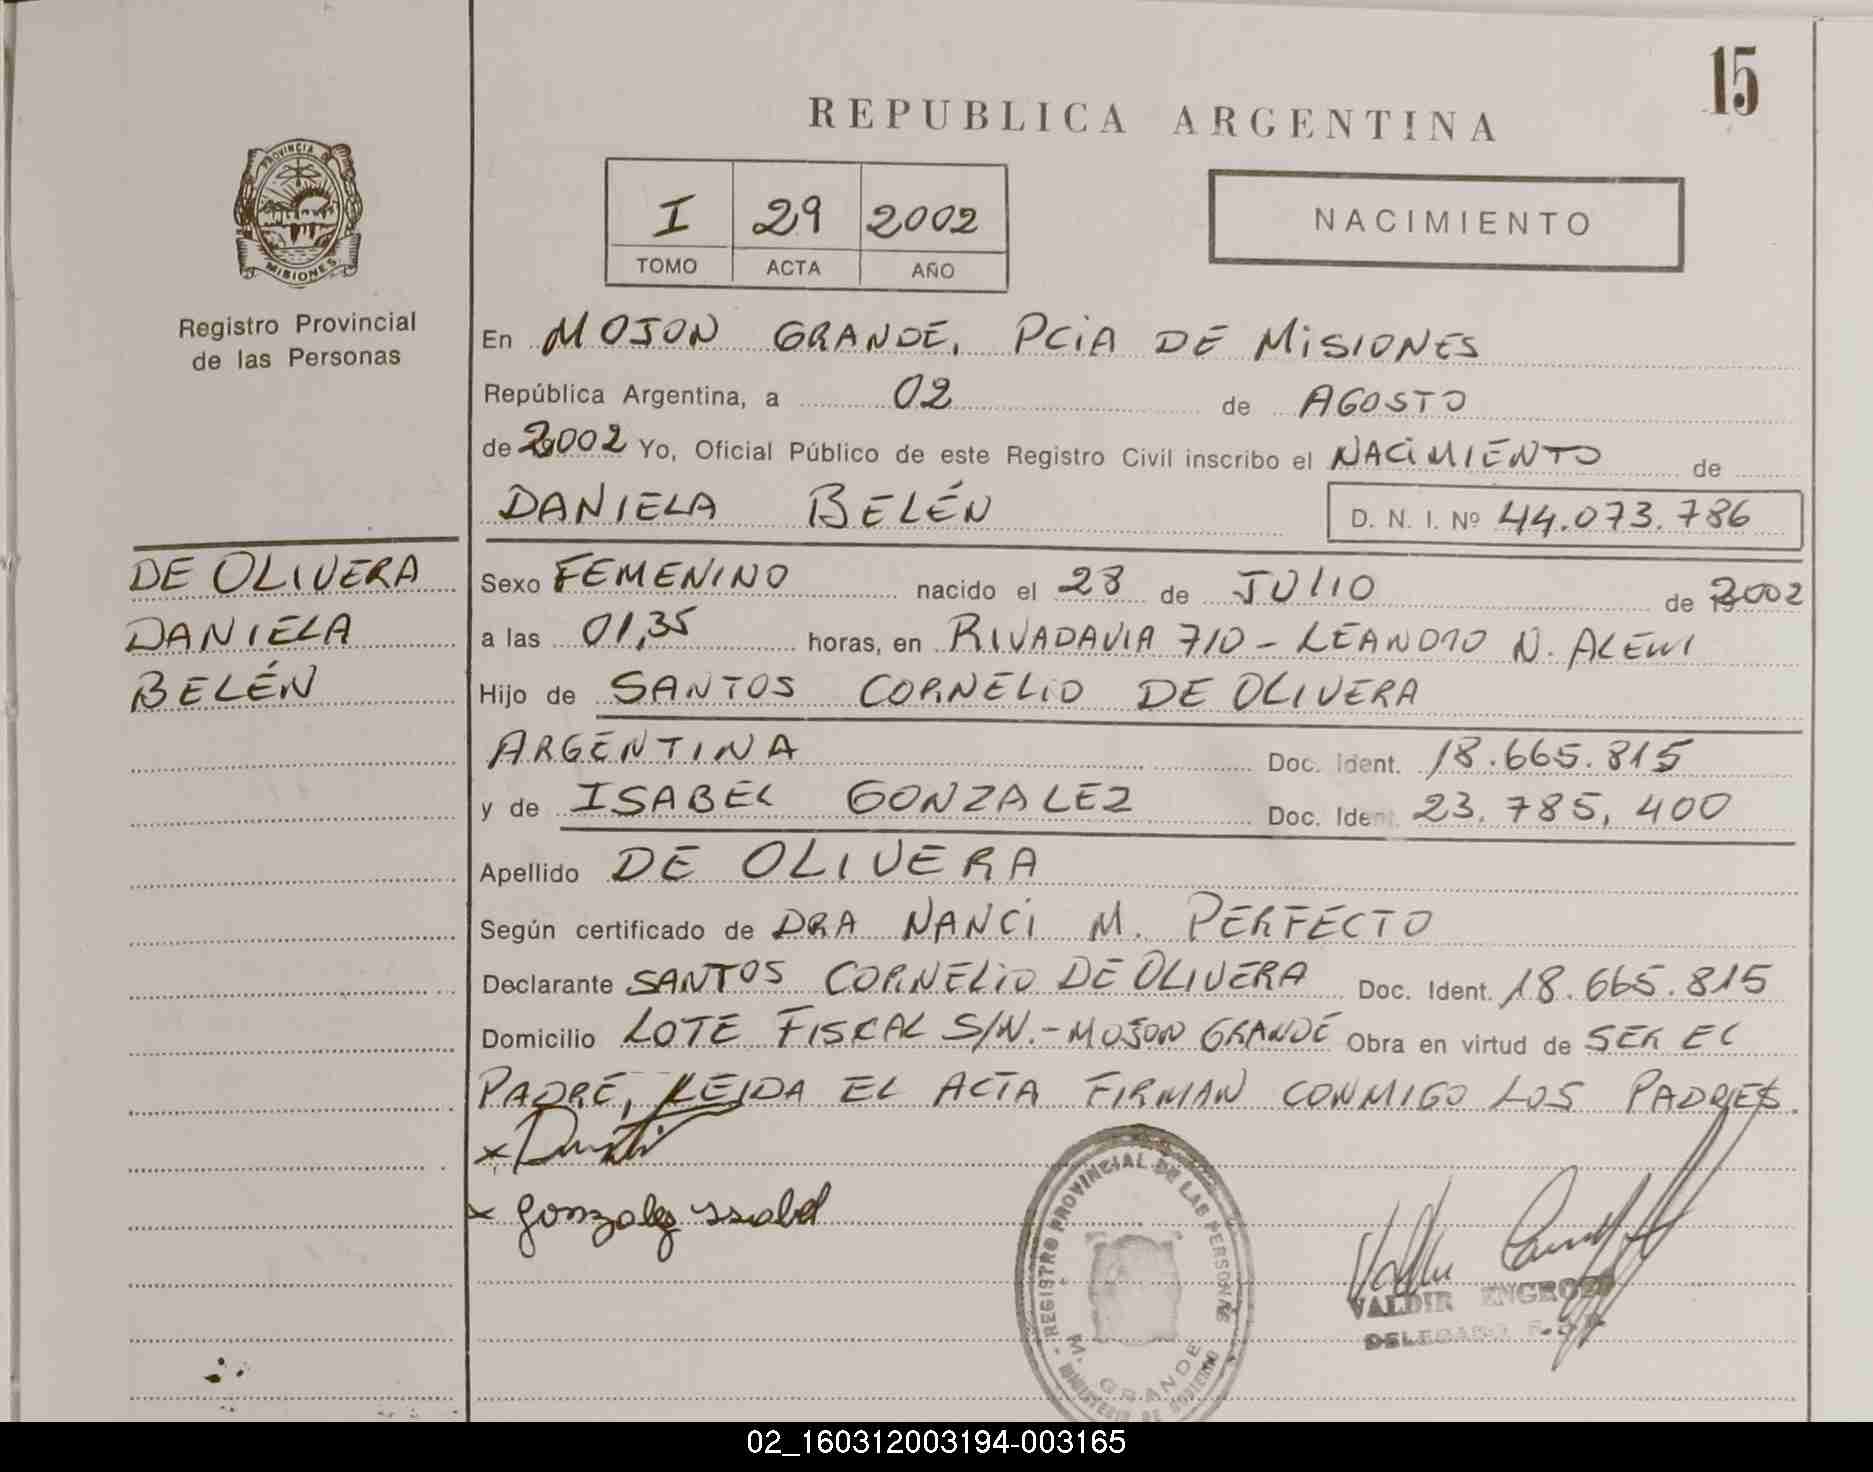 15
REPUBLICA ARGENTINA
PROVINCIA
MISIONES
Registro Provincial
de las Personas
I 29 2002
TOMO ACTA AÑO
NACIMIENTO
En MOJON GRANDE, PCIA DE MISIONES
República Argentina, a 02 de AGOSTO
de 2002 Yo, Oficial Público de este Registro Civil inscribo el NACIMIENTO de
DANIELA BELÉN D. N. I. Nº 44.073.786
DE OLIVERA
DANIELA
BELÉN
Sexo FEMENINO nacido el 28 de JULIO de 2002
a las 01,35 horas, en RIVADAVIA 710 - LEANDRO N. ALEM
Hijo de SANTOS CORNELIO DE OLIVERA
ARGENTINA Doc. Ident. 18.665.815
y de ISABEL GONZALEZ Doc. Ident. 23.785,400
Apellido DE OLIVERA
Según certificado de DRA NANCI M. PERFECTO
Declarante SANTOS CORNELIO DE OLIVERA Doc. Ident. 18.665.815
Domicilio LOTE FISCAL S/N.- MOJON GRANDE Obra en virtud de SER EL
PADRE, LEIDA EL ACTA FIRMAN CONMIGO LOS PADRES.
x
x Gonzalez Issabel
REGISTRO PROVINCIAL DE LAS PERSONAS
M. GRANDE
MINISTERIO DE GOBIERNO
VALDIR ENGROFF
DELEGADO
02_160312003194-003165